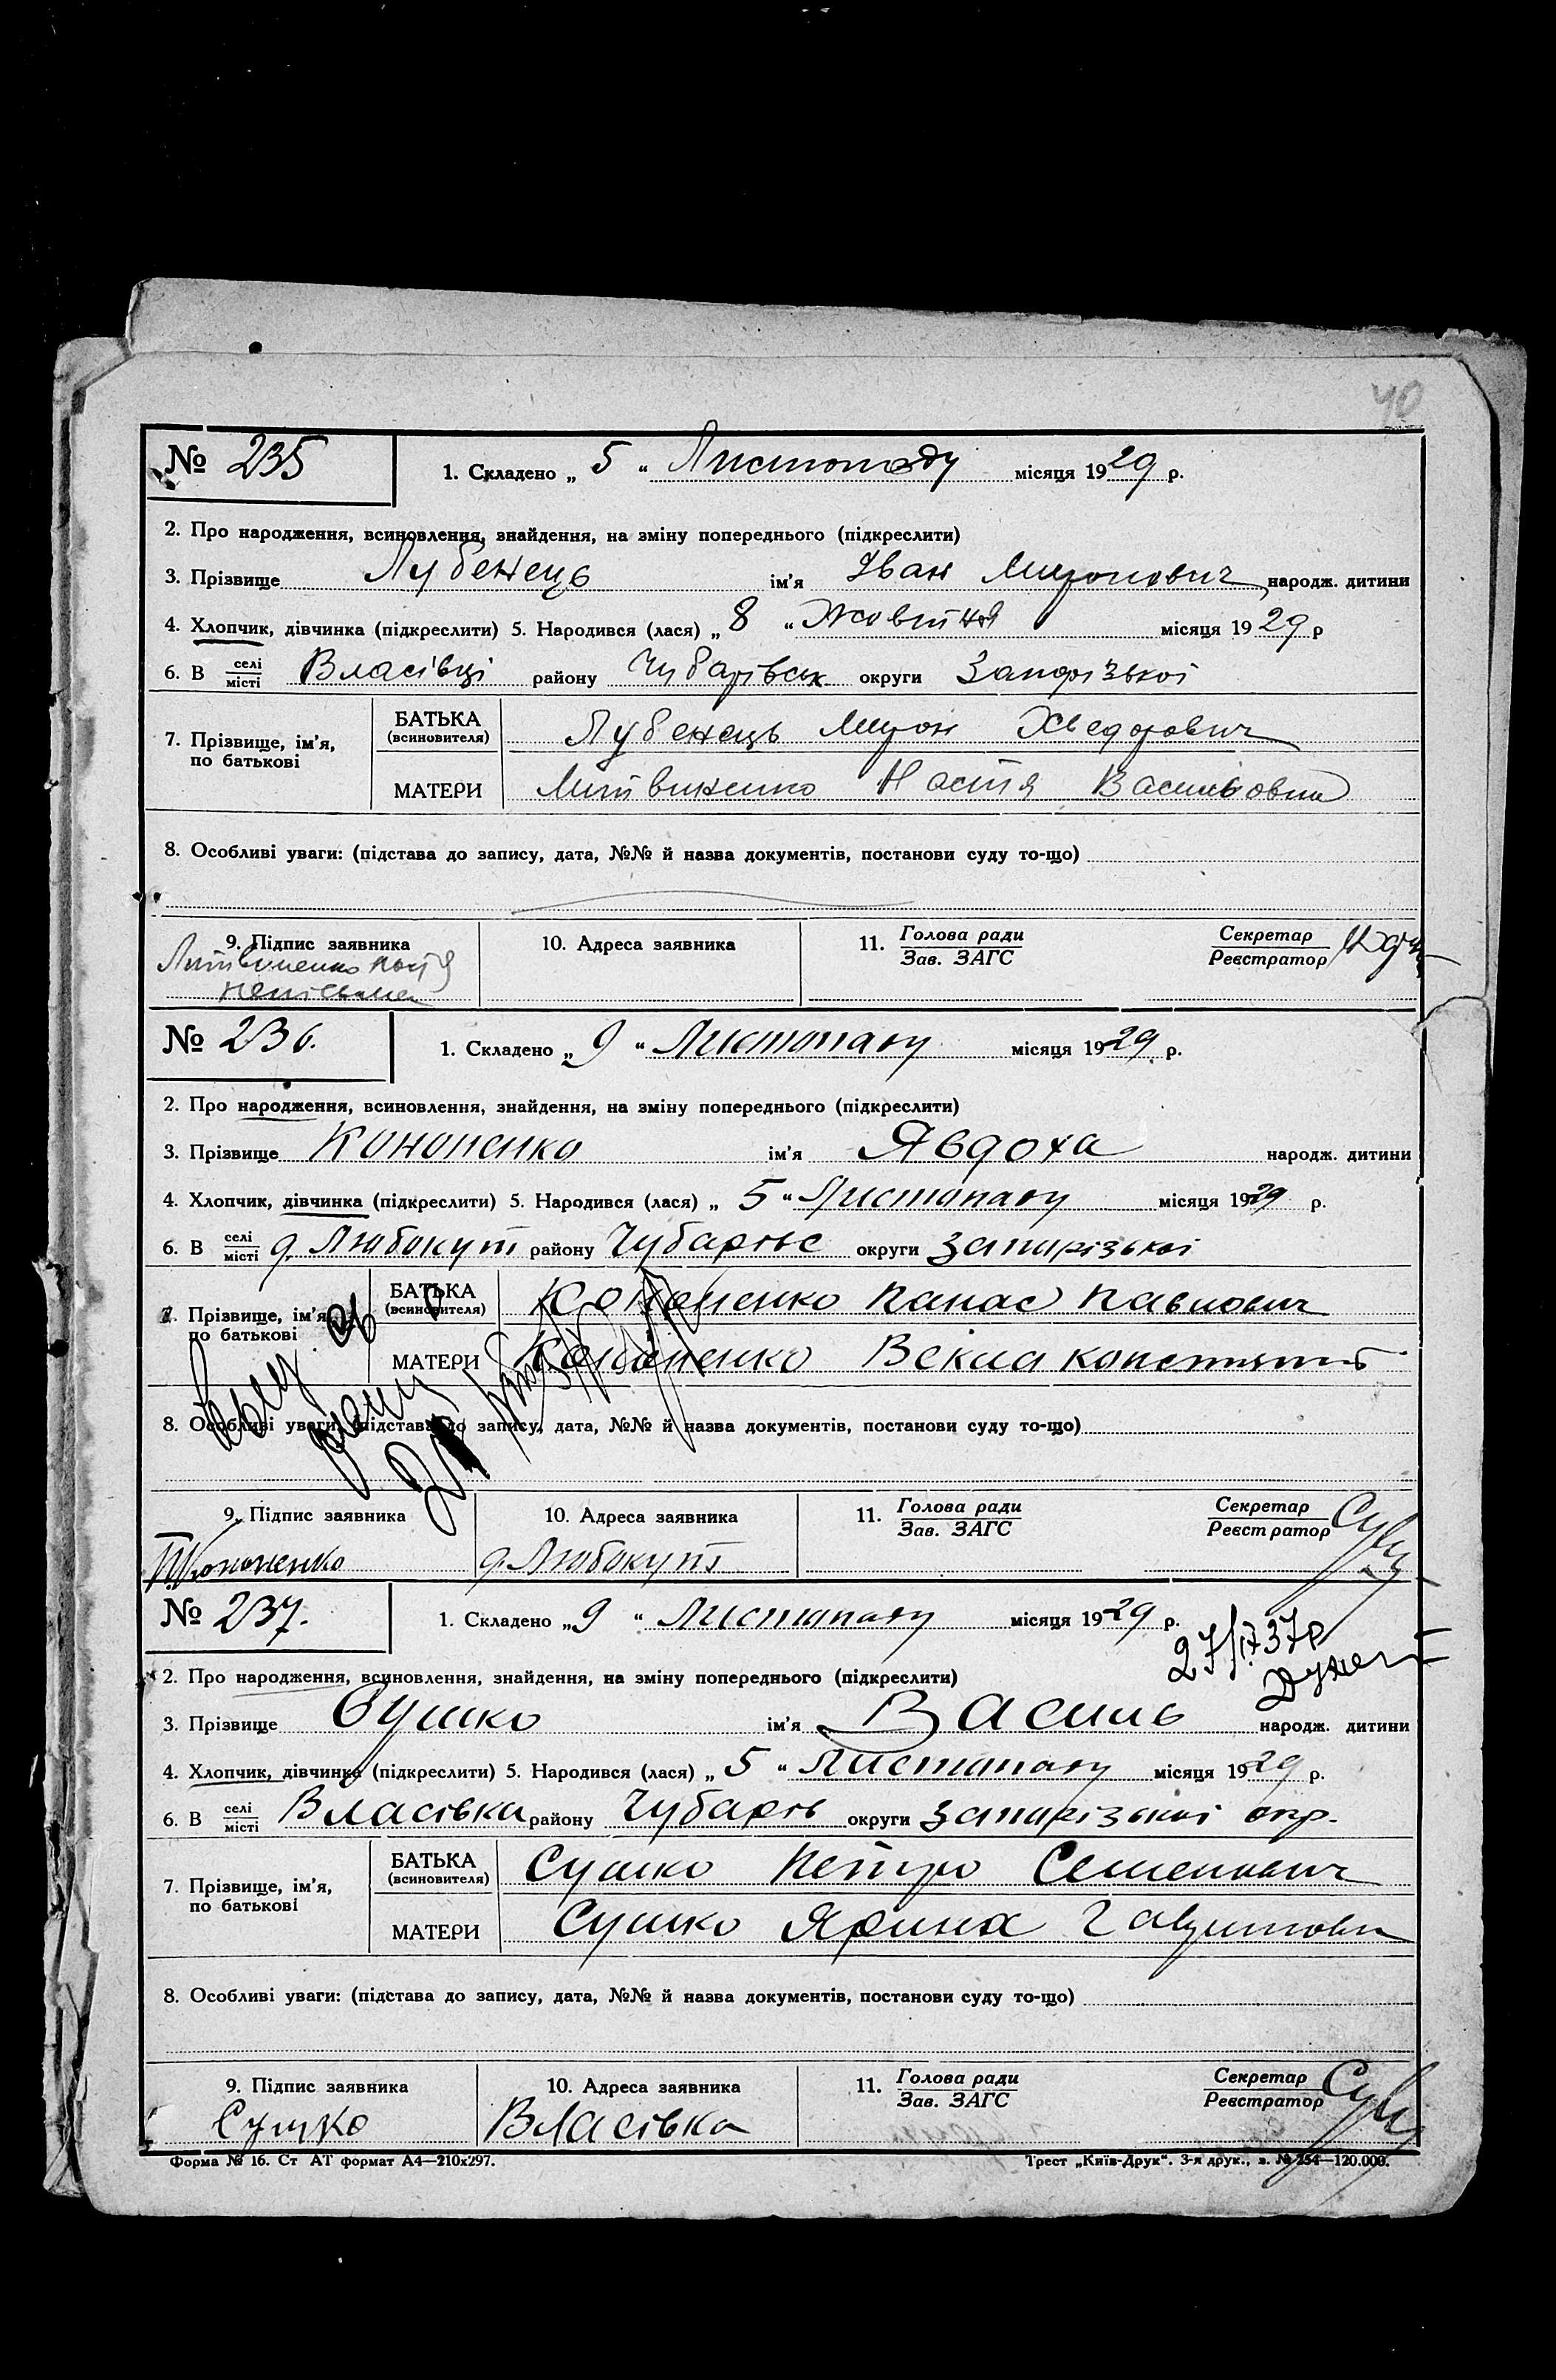 40
№ 235
1. Складено „ 5 “ Листопаду місяця 1929 р.
2. Про народження, всиновлення, знайдення, на зміну попереднього (підкреслити)
3. Прізвище Лубенець ім'я Іван Миронович народж. дитини
4. Хлопчик, дівчинка (підкреслити) 5. Народився (лася) „ 8 “ Жовтня місяця 1929 р
6. В селі/місті Власівці району Чубарівськ округи Запорізької
7. Прізвище, ім'я, по батькові
БАТЬКА (всиновителя) Лубенець Мирон Хведорович
МАТЕРИ Литвиненко Настя Васильовна
8. Особливі уваги: (підстава до запису, дата, №№ й назва документів, постанови суду то-що)
9. Підпис заявника 10. Адреса заявника 11. Голова ради/Зав. ЗАГС Секретар/Реєстратор
Литвиненко Настя
№ 236.
1. Складено „ 9 “ Листопаду місяця 1929 р.
2. Про народження, всиновлення, знайдення, на зміну попереднього (підкреслити)
3. Прізвище Кононенко ім'я Явдоха народж. дитини
4. Хлопчик, дівчинка (підкреслити) 5. Народився (лася) „ 5 “ Листопаду місяця 1929 р.
6. В селі/місті д. Любокут району Чубарівс округи Запорізької
7. Прізвище, ім'я, по батькові
БАТЬКА (всиновителя) Кононенко Панас Павлович
МАТЕРИ Кононенко Векла
8. Особливі уваги: (підстава до запису, дата, №№ й назва документів, постанови суду то-що)
9. Підпис заявника 10. Адреса заявника 11. Голова ради/Зав. ЗАГС Секретар/Реєстратор
П. Кононенко д. Любокут
№ 237.
1. Складено „ 9 “ Листопаду місяця 1929 р.
2. Про народження, всиновлення, знайдення, на зміну попереднього (підкреслити)
3. Прізвище Сушко ім'я Василь народж. дитини
4. Хлопчик, дівчинка (підкреслити) 5. Народився (лася) „ 5 “ Листопаду місяця 1929 р.
6. В селі/місті Власівка району Чубарів округи Запорізької окр.
7. Прізвище, ім'я, по батькові
БАТЬКА (всиновителя) Сушко Петро Семенович
МАТЕРИ Сушко Ярина
8. Особливі уваги: (підстава до запису, дата, №№ й назва документів, постанови суду то-що)
9. Підпис заявника 10. Адреса заявника 11. Голова ради/Зав. ЗАГС Секретар/Реєстратор
Сушко Власівка
Форма № 16. Ст АТ формат А4—210х297. Трест „Київ-Друк“. 3-я друк., з. № 254—120.000.